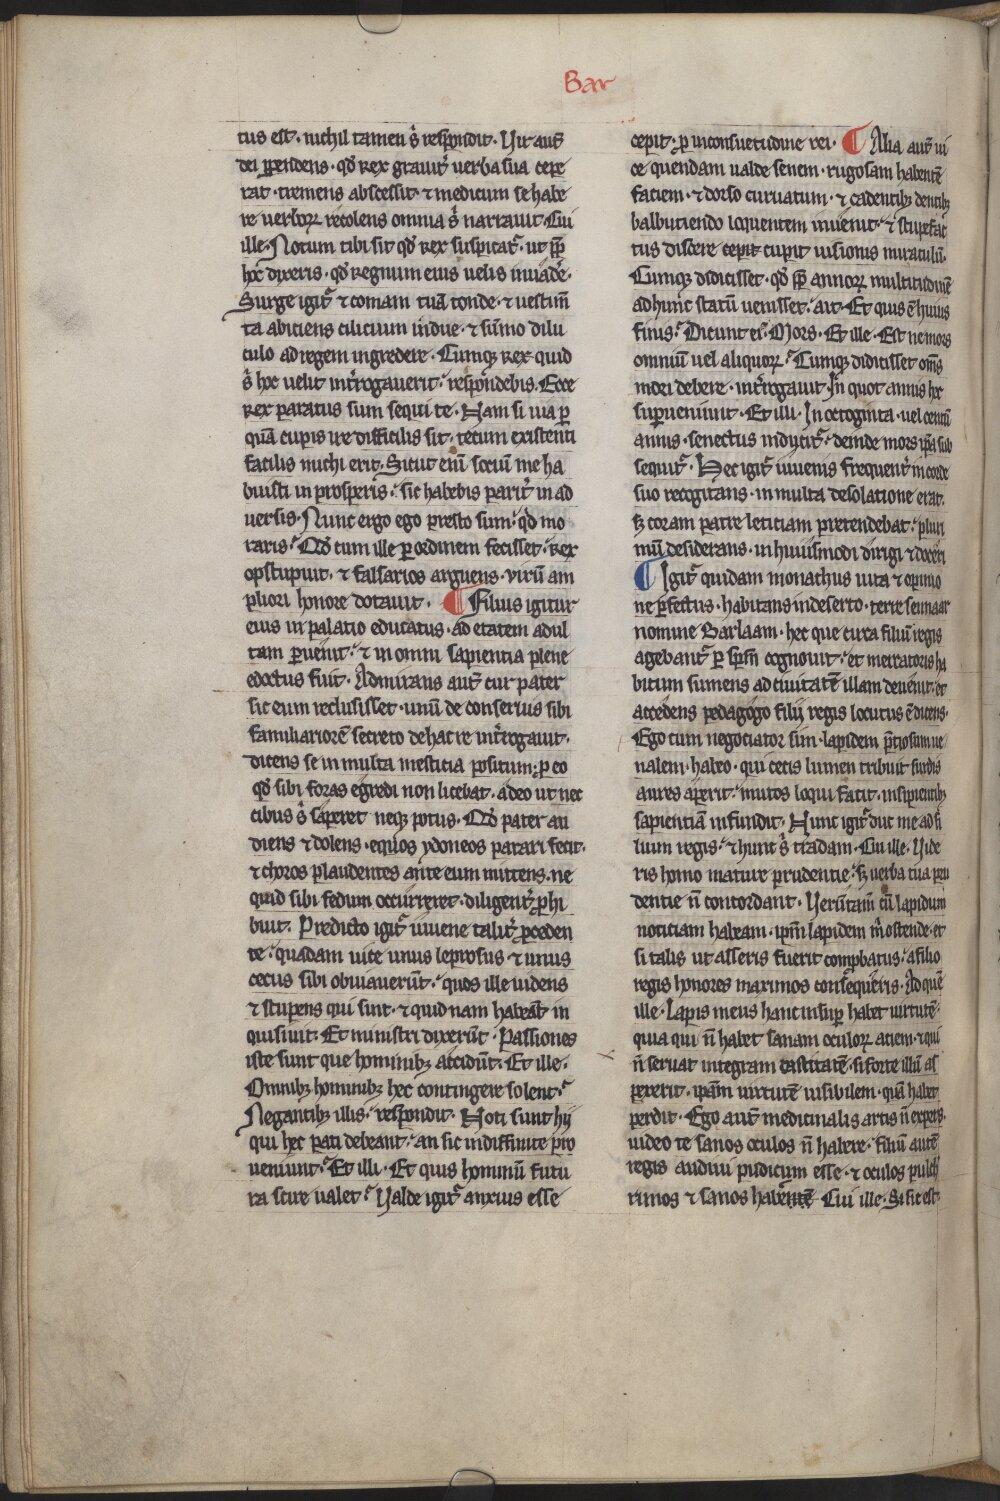 Bar
tus est· nichil tamen s̉ respondit· Vir aut̄
dei ꝑpendens· qd̉ Rex grauit̉ uerba sua cepe
rat· tremens abscessit· ⁊ medicum se habe
re uerboꝝ recolens omnia s̉ narrauit· Cui
ille· Notum tibi sit qd̉ Rex suspicat᷑· ut ꝓp̄
hͦ dixeris· qd̉ Regnum eius uelis inuad̉e·
Surge igit᷑ ⁊ comam tuā tonde· ⁊ uestim̄
ta abiciens cilicium indue· ⁊ sūmo dilu
culo ad regem ingredere· Cumqꝫ Rex quid
s̉ hoc uelit int̉rogauerit· respondebis· Ecce
Rex paratus sum sequi te· Nam si uia ꝑ
quā cupis ire difficilis sit· tecum existenti
facilis michi erit· Sicut eni̅ sociū me ha
buisti in prosperis· sic habebis parit̉ in ad
uersis· Nunc ergo ego presto sum· qd̉ mo
raris· Qd̉ cum ille ꝑ ordinem fecisset· Rex
opstupuit· ⁊ falsarios arguens· virū am
pliori honore dotauit· ¶ Filius igitur
eius in palatio educatus· ad etatem adul
tam ꝑuenit· ⁊ in omni sapientia plene
edoctus fuit· Admirans aut̄ cur pater
sic eum reclusisset· unū de conseruis sibi
familiariorē secreto de hac re int̉rogauit·
dicens se in multa mesticia positum· ꝑ eo
qd̉ sibi foras egredi non licebat· adeo ut nec
cibus s̉ saperet neqꝫ potus· Qd̉ pater au
diens ⁊ dolens· equos ydoneos parari fecit·
⁊ choros plaudentes ante eum mittens· ne
quid sibi fedum occurreret· diligent̉ ꝓhi
buit· Predicto igit᷑ iuuene talit̉ ꝓceden
te· quadam uice unus leprosus ⁊ unus
cecus sibi obuiauerūt· quos ille uidens
⁊ stupens qui sint· ⁊ quid nam habeāt in
quisiuit· Et ministri dixerūt· Passiones
iste sunt que hominibꝫ accidūt· Et ille·
Omnibꝫ hominibꝫ hec contingere solent·
Negantibꝫ illis· respondit· Noti sunt hij
qui hec pati debeant· an sic indiffinite pro
ueniunt· Et illi· Et quis hominū futu
ra scire ualet· Valde igit᷑ anxius esse
cepit· ꝑ inconsuetudine rei· ¶ Alia aut̄ ui
ce quendam ualde senem· rugosam habentē
faciem· ⁊ dorso curuatum· ⁊ cadentibꝫ dentibꝫ
balbutiendo loquentem inuenit· ⁊ stupefac
tus discere cepit cupit uisionis miraculū·
Cumqꝫ didicisset· qd̉ ꝓp̄ annoꝝ multitudinē
ad hunc statū uenisset· ait· Et quis ē huius
finis· Dicunt ei· Mors· Et ille· Est ne mors
omniū uel aliquoꝝ· Cumqꝫ didicisset om̄s
mori debere· int̉rogauit· In quot annis hͦ
superueniunt· Et illi· In octoginta· uel centū
annis· senectus inducit᷑· deinde mors ip̄a sub
sequit᷑· Hec igit᷑ iuuenis frequent̉ in corde
suo recogitans· in multa desolatione erat·
sꝫ coram patre leticiam pretendebat· pluri
mū desiderans· in huiusmodi dirigi ⁊ doceri
¶ Igit᷑ quidam monachus uita ⁊ opinio
ne ꝑfectus· habitans in deserto· terre sennaar
nomine Barlaam· hec que circa filiū regis
agebant᷑ ꝑ sp̄m cognouit· et mercatoris ha
bitum sumens ad ciuitatē illam deuenit· et
accedens pedagogo filij regis locutus ē dicens·
Ego cum negociator sim· lapidem p̄ciosum ue
nalem habeo· qui cecis lumen tribuit surdis
aures aperit· mutos loqui facit· insipientibꝫ
sapientiā infundit· Nunc igit᷑ duc me ad fi
lium regis· ⁊ hunc s̉ tradam· Cui ille· Vide
ris homo mature prudentie· sꝫ uerba tua pru
dentie n̄ concordant· Verūtam̄ cū lapidum
noticiam habeam· ip̄m lapidem m̉ ostende· et
si talis ut asseris fuerit comprobatus· a filio
regis honores maximos conseq̉ris· Ad quē
ille· Lapis meus hanc insuꝑ habet uirtutē·
quia qui n̄ habet sanam oculoꝝ aciem· ⁊ qui
n̄ seruat integram castitatē· si forte illū as
pexerit· ip̄am uirtutē uisibilem· quā habet
perdit· Ego aut̄ medicinalis artis n̄ expers·
uideo te sanos oculos n̄ habere· filiū autē
regis audiui pudicum esse· ⁊ oculos pulch
rimos ⁊ sanos habentē Cui ille· Si sic est·